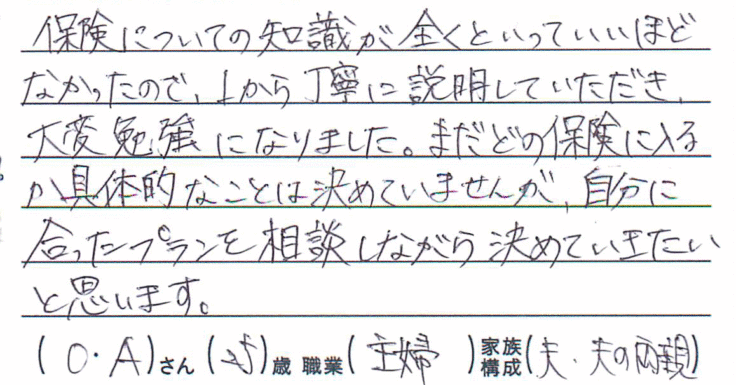 保険についての知識が全くといっていいほど
なかったので、1から丁寧に説明していただき、
大変勉強になりました。まだどの保険に入る
か具体的なことは決めていませんが、自分に
合ったプランを相談しながら決めていきたい
と思います。
(O・A)さん(25)歳 職業(主婦)家族構成(夫・夫の両親)